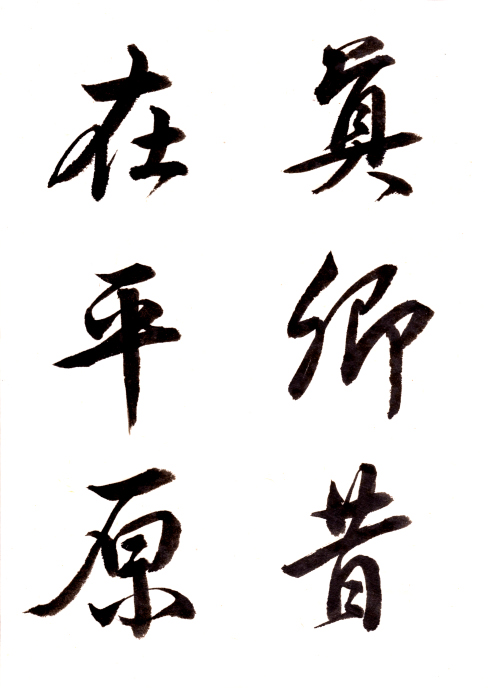 真卿昔
在平原